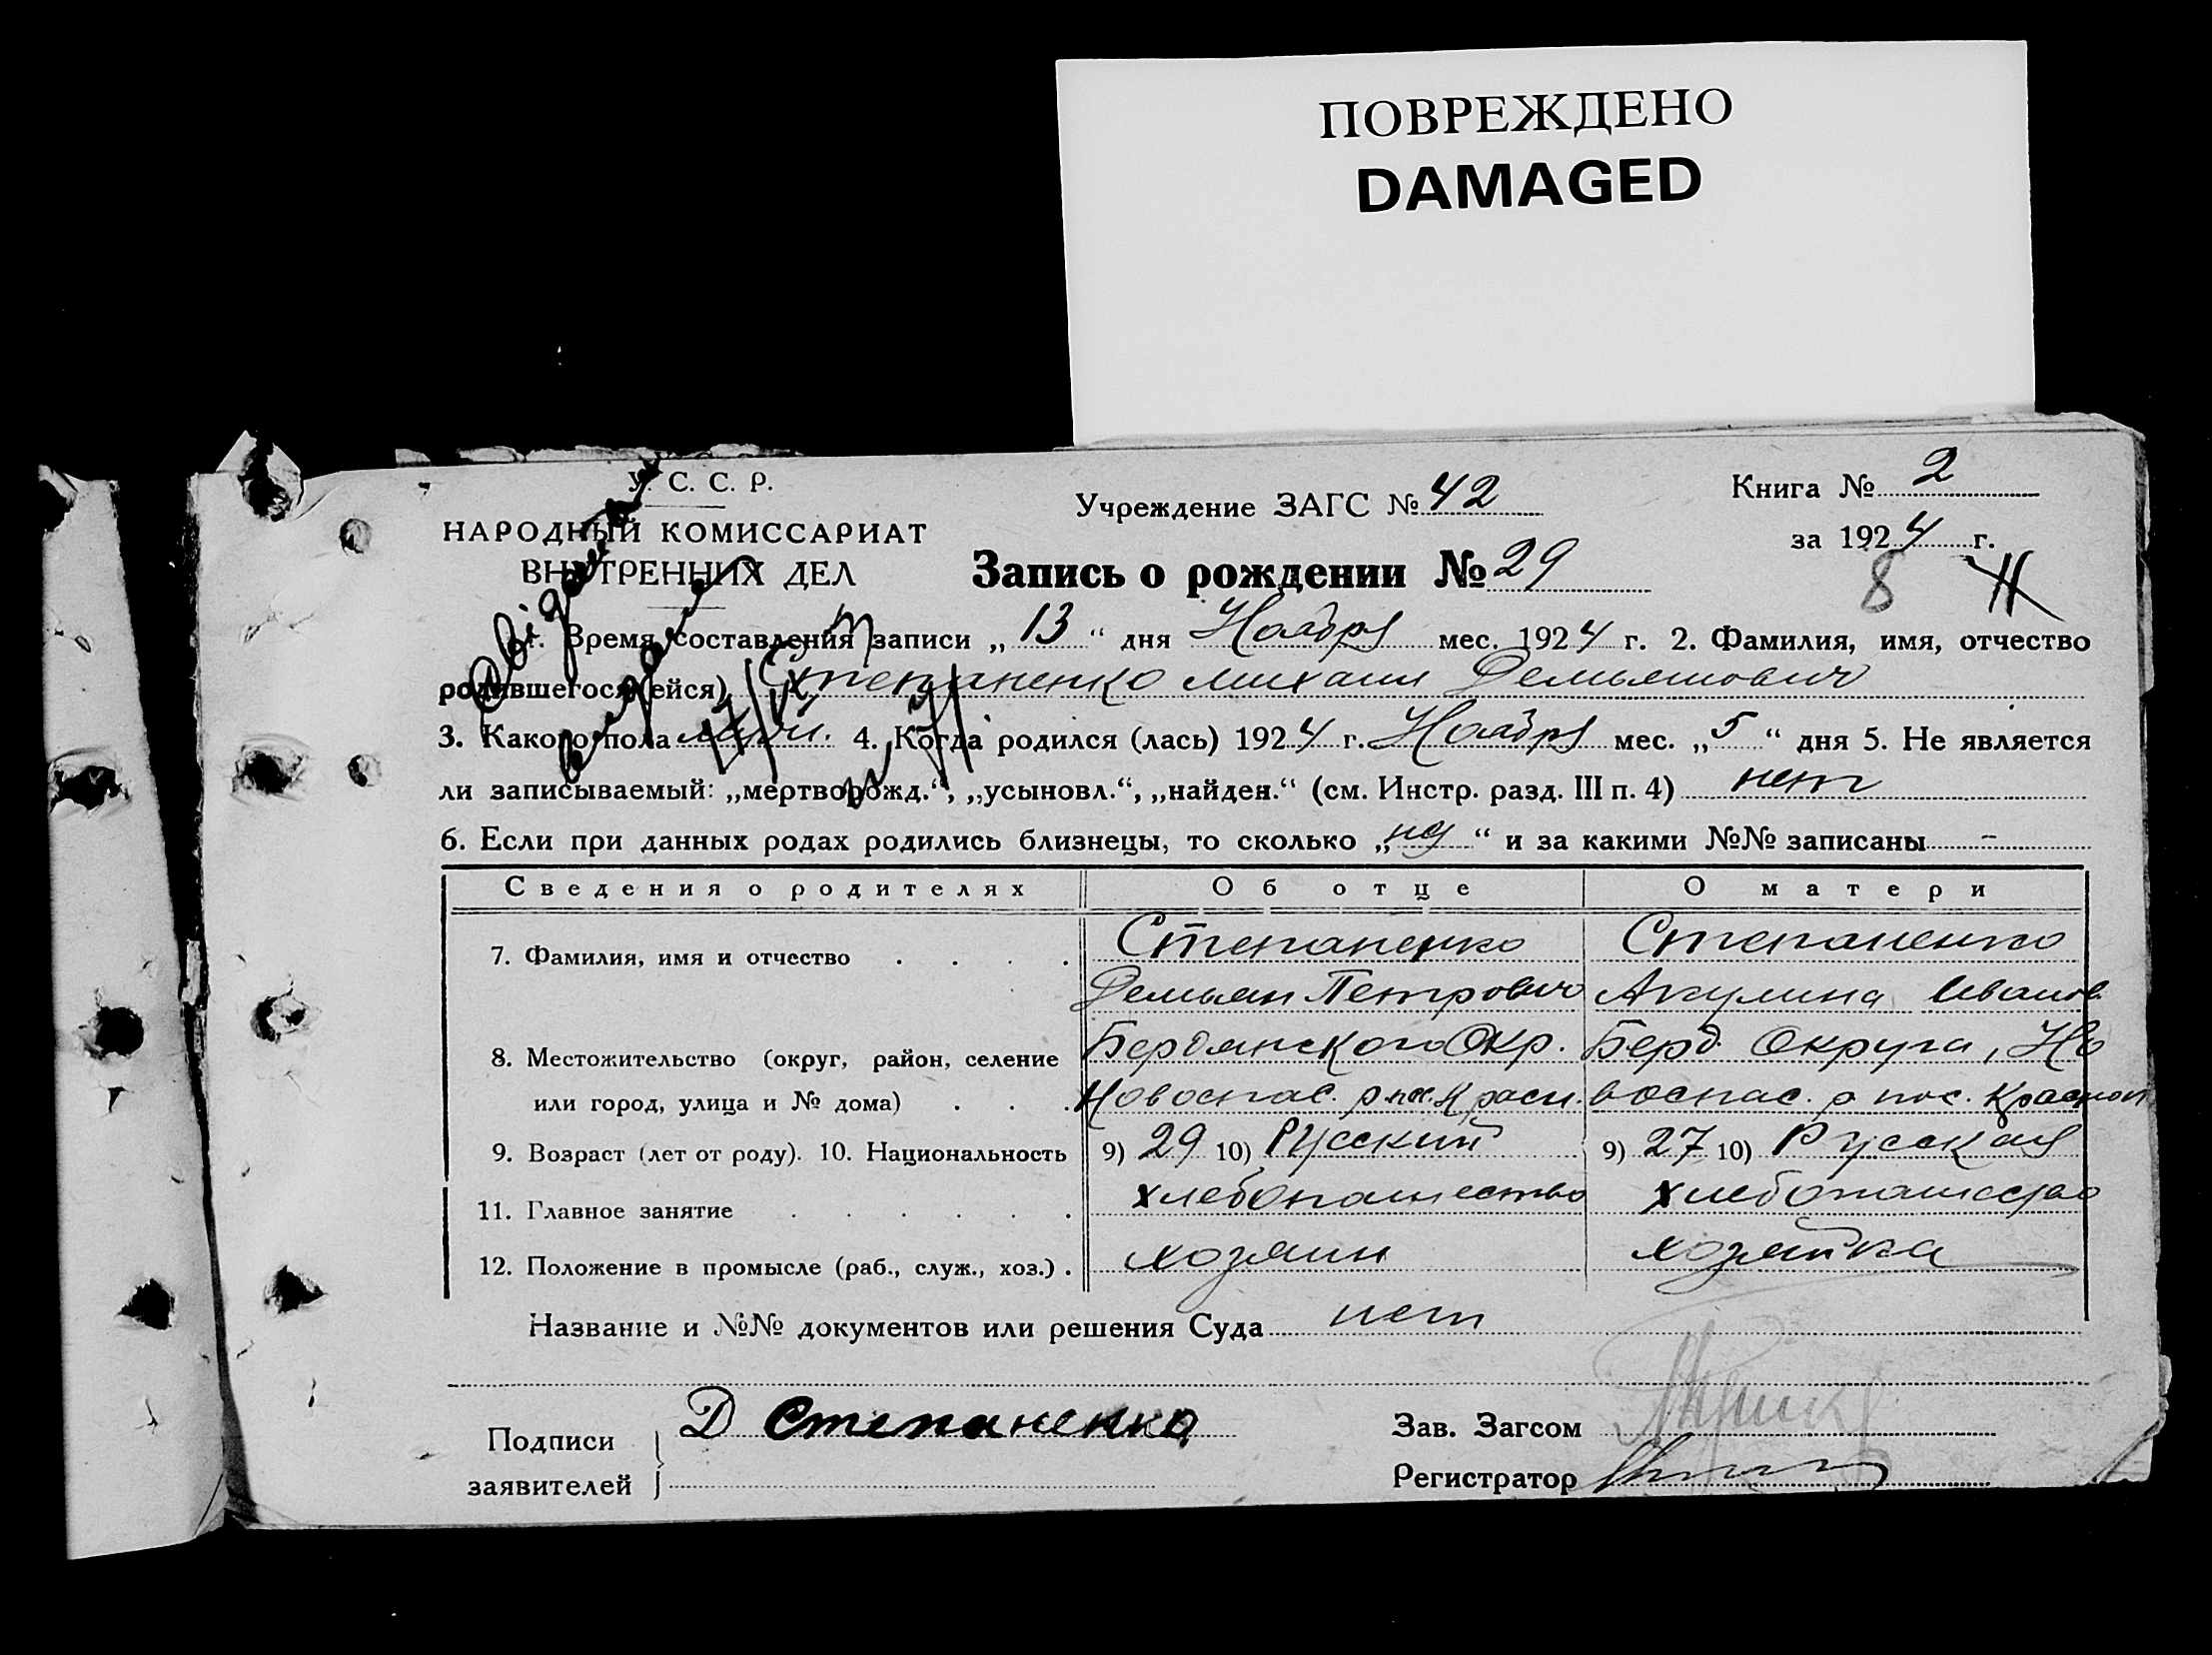 ПОВРЕЖДЕНО
DAMAGED
У. С. С. Р.
НАРОДНЫЙ КОМИССАРИАТ
ВНУТРЕННИХ ДЕЛ
Учреждение ЗАГС № 42
Книга № 2
за 1924 г.
Запись о рождении № 29
8 11
1. Время составления записи „13“ дня Ноября мес. 1924 г. 2. Фамилия, имя, отчество
родившегося (ейся) Степаненко Михаил Демьянович
3. Какого пола муж. 4. Когда родился (лась) 1924 г. Ноября мес. „5“ дня 5. Не является
ли записываемый: „мертворожд.“, „усыновл.“, „найден.“ (см. Инстр. разд. III п. 4) нет
6. Если при данных родах родились близнецы, то сколько „ “ и за какими №№ записаны –
Сведения о родителях Об отце О матери
7. Фамилия, имя и отчество . . . . Степаненко Степаненко
Демьян Петрович Акулина Иванов
8. Местожительство (округ, район, селение Бердянского Окр. Берд. Округа, Но
или город, улица и № дома) . . . Новоспас. р. пос. Красн. воспас. р. пос. Красноп
9. Возраст (лет от роду). 10. Национальность 9) 29 10) Русский 9) 27 10) Русская
11. Главное занятие . . . . . . хлебопашество хлебопашество
12. Положение в промысле (раб., служ., хоз.) . хозяин хозяйка
Название и №№ документов или решения Суда нет
Подписи Д Степаненко
заявителей
Зав. Загсом
Регистратор